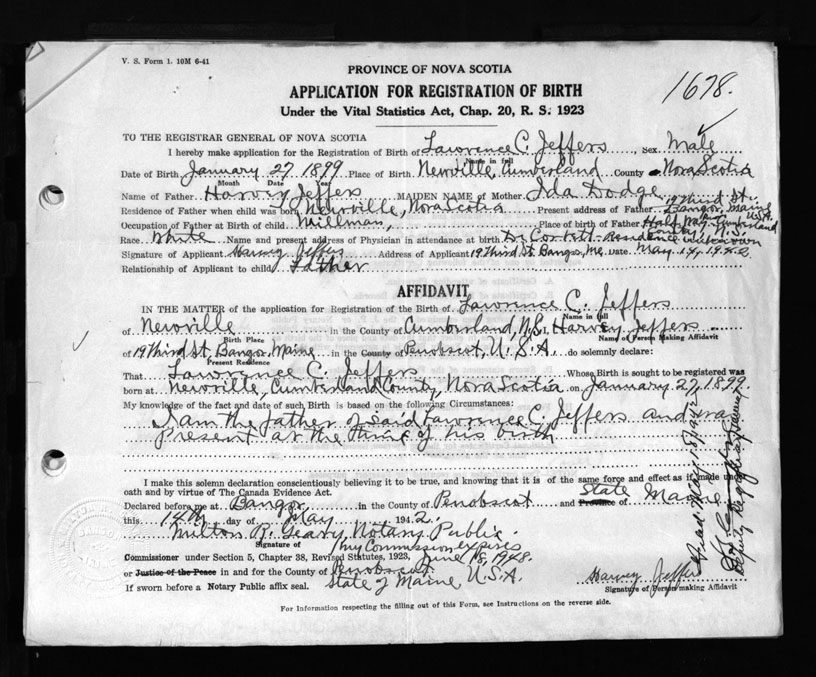 V. S. Form 1. 10M 6-41
PROVINCE OF NOVA SCOTIA
1678.
APPLICATION FOR REGISTRATION OF BIRTH
Under the Vital Statistics Act, Chap. 20, R. S. 1923
TO THE REGISTRAR GENERAL OF NOVA SCOTIA
I hereby make application for the Registration of Birth of Lawrence C. Jeffers, Sex Male
Name in full
Date of Birth January 27 1899 Place of Birth Newville, Cumberland County Nova Scotia
Month Date Year
Name of Father Harvey Jeffers MAIDEN NAME of Mother Ida Dodge
Residence of Father when child was born Newville, Nova Scotia Present address of Father 19 Third St. Bangor, Maine U.S.A.
Occupation of Father at Birth of child Millman, Place of birth of Father Half Way Cumberland County, N.S.
Race White Name and present address of Physician in attendance at birth Dr residence unknown
Signature of Applicant Harvey Jeffers Address of Applicant 19 Third St. Bangor, Me. Date May 14, 1942
Relationship of Applicant to child Father
AFFIDAVIT
IN THE MATTER of the application for Registration of the Birth of Lawrence C. Jeffers
Name in full
of Newville in the County of Cumberland, N.S., Harvey Jeffers
Birth Place Name of Person Making Affidavit
of 19 Third St, Bangor, Maine in the County of Penobscot, U.S.A. do solemnly declare:
Present Residence
That Lawrence C. Jeffers Whose Birth is sought to be registered was
born at Newville, Cumberland County, Nova Scotia on January 27, 1899.
My knowledge of the fact and date of such Birth is based on the following Circumstances:
I am the father of said Lawrence C. Jeffers and was
Present at the time of his birth
I make this solemn declaration conscientiously believing it to be true, and knowing that it is of the same force and effect as if made under
oath and by virtue of The Canada Evidence Act.
Declared before me at Bangor in the County of Penobscot and State Province of Maine
this 14th day of May 1942.
Milton R. Geary, Notary Public
Signature of My Commission expires
Commissioner under Section 5, Chapter 38, Revised Statutes, 1923, June 18, 1948.
or Justice of the Peace in and for the County of Penobscot
If sworn before a Notary Public affix seal. State of Maine U.S.A.
Harvey Jeffers
Signature of Person making Affidavit
For Information respecting the filling out of this Form, see Instructions on the reverse side.
Deputy Registrar General